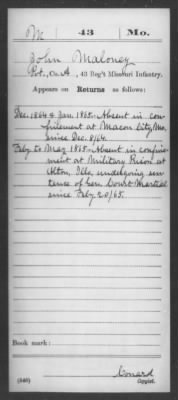 M | 43 | Mo.
John Maloney
Pvt., Co. A, 43 Reg't Missouri Infantry.
Appears on Returns as follows:
Dec. 1864 & Jan. 1865 - Absent in con-
finement at Macon City, Mo.
since Dec. 8/64.
Feby. to May 1865 - Absent in confine-
ment at Military Prison at
Alton, Ills, undergoing sen-
tence of Gen. Court Martial
since Feby. 20/65.
Book mark:
(546)
Conard
Copyist.